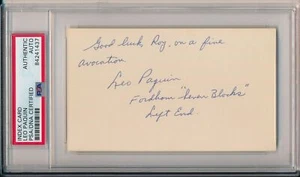 Good luck Roy, on a fine
avocation
Leo Paquin
Fordham "Seven Blocks"
Left End
AUTHENTIC
AUTO
84241437
PSA
INDEX CARD
LEO PAQUIN
PSA/DNA CERTIFIED